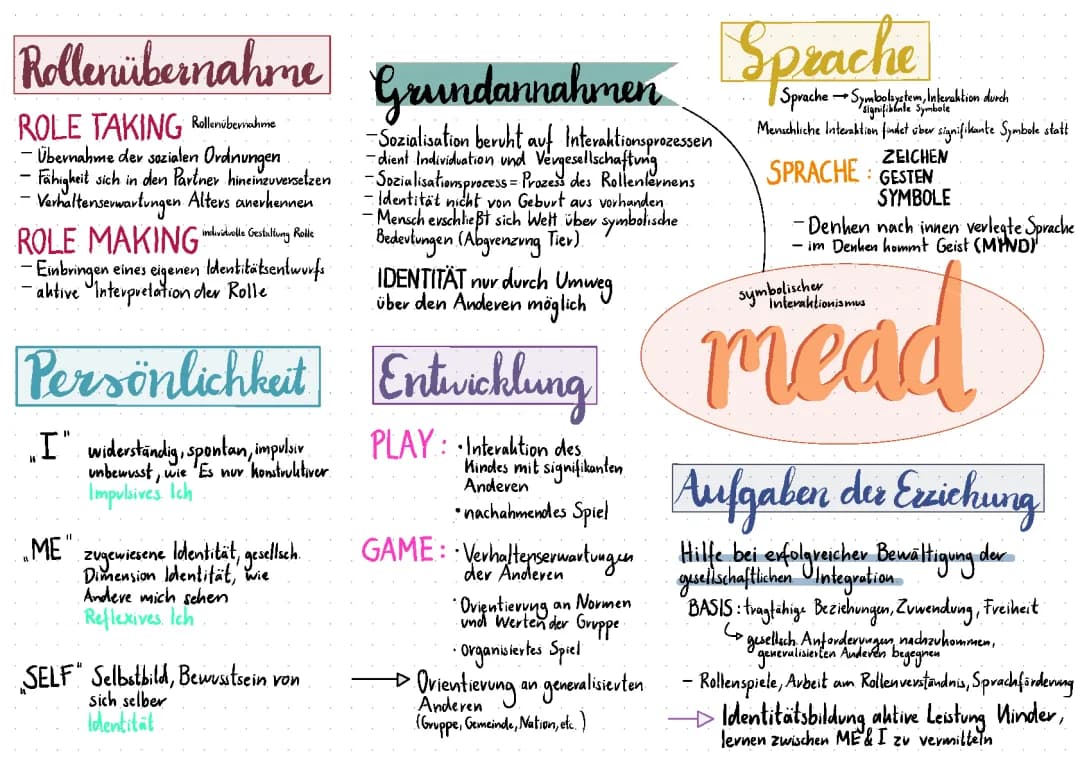 Rollenübernahme
ROLE TAKING Rollenübernahme
- Übernahme der sozialen Ordnungen
- Fähigkeit sich in den Partner hineinzuversetzen
- Verhaltenserwartungen Alters anerkennen
ROLE MAKING individuelle Gestaltung Rolle
- Einbringen eines eigenen Identitätsentwurfs
- aktive Interpretation der Rolle
Grundannahmen
- Sozialisation beruht auf Interaktionsprozessen
- dient Individuation und Vergesellschaftung
- Sozialisationsprozess = Prozess des Rollenlernens
- Identität nicht von Geburt aus vorhanden
- Mensch erschließt sich Welt über symbolische
Bedeutungen (Abgrenzung Tier)
IDENTITÄT nur durch Umweg
über den Anderen möglich
Sprache
Sprache → Symbolsystem, Interaktion durch
signifikante Symbole
Menschliche Interaktion findet über signifikante Symbole statt
SPRACHE :
ZEICHEN
GESTEN
SYMBOLE
- Denken nach innen verlegte Sprache
- im Denken kommt Geist (MIND)
symbolischer
Interaktionismus
mead
Persönlichkeit
„I" widerständig, spontan, impulsiv
unbewusst, wie Es nur konstruktiver
Impulsives Ich
„ME" zugewiesene Identität, gesellsch.
Dimension Identität, wie
Andere mich sehen
Reflexives Ich
„SELF" Selbstbild, Bewusstsein von
sich selber
Identität
Entwicklung
PLAY : · Interaktion des
Kindes mit signifikanten
Anderen
· nachahmendes Spiel
GAME : · Verhaltenserwartungen
der Anderen
· Orientierung an Normen
und Werten der Gruppe
· organisiertes Spiel
→ Orientierung an generalisierten
Anderen
(Gruppe, Gemeinde, Nation, etc.)
Aufgaben der Erziehung
Hilfe bei erfolgreicher Bewältigung der
gesellschaftlichen Integration
BASIS : tragfähige Beziehungen, Zuwendung, Freiheit
↳ gesellsch. Anforderungen nachzukommen,
generalisierten Anderen begegnen
- Rollenspiele, Arbeit am Rollenverständnis, Sprachförderung
→ Identitätsbildung aktive Leistung Kinder,
lernen zwischen ME & I zu vermitteln